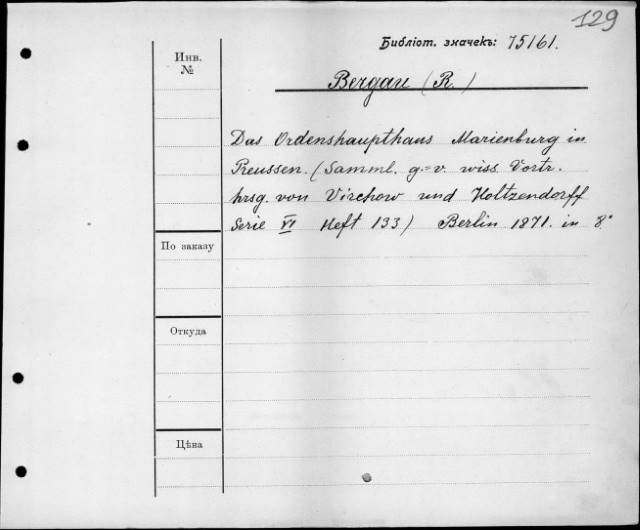 129
Библіот. значекъ: 75161.
Инв.
№
Bergau (R.)
Das Ordenshaupthaus Marienburg in
Preussen. (Samml. g.=v. wiss. Vortr.
hrsg. von Virchow und Holtzendorff
Serie VI Heft 133) Berlin 1871. in 8°
По заказу
Откуда
Цѣна